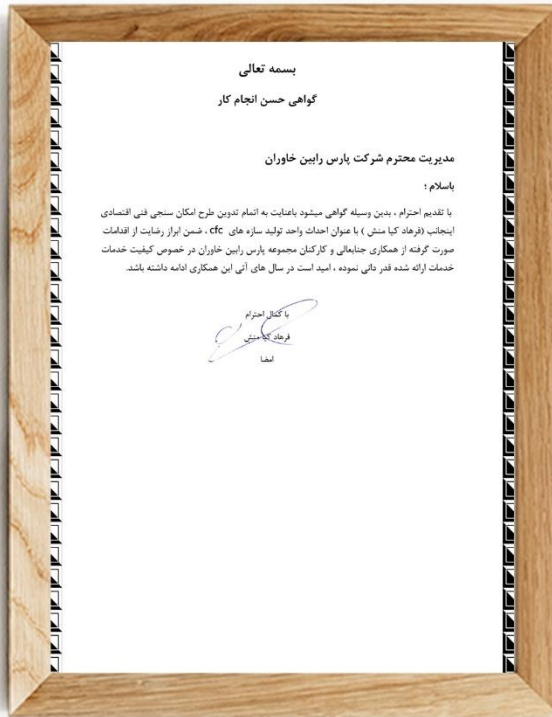 بسمه تعالی
گواهی حسن انجام کار
مدیریت محترم شرکت پارس رابین خاوران
باسلام ؛
با تقدیم احترام ، بدین وسیله گواهی میشود باعنایت به اتمام تدوین طرح امکان سنجی فنی اقتصادی
اینجانب (فرهاد کیا منش ) با عنوان احداث واحد تولید سازه های cfc ، ضمن ابراز رضایت از اقدامات
صورت گرفته از همکاری جنابعالی و کارکنان مجموعه پارس رابین خاوران در خصوص کیفیت خدمات
خدمات ارائه شده قدر دانی نموده ، امید است در سال های آتی این همکاری ادامه داشته باشد.
با کمال احترام
فرهاد کیا منش
امضا